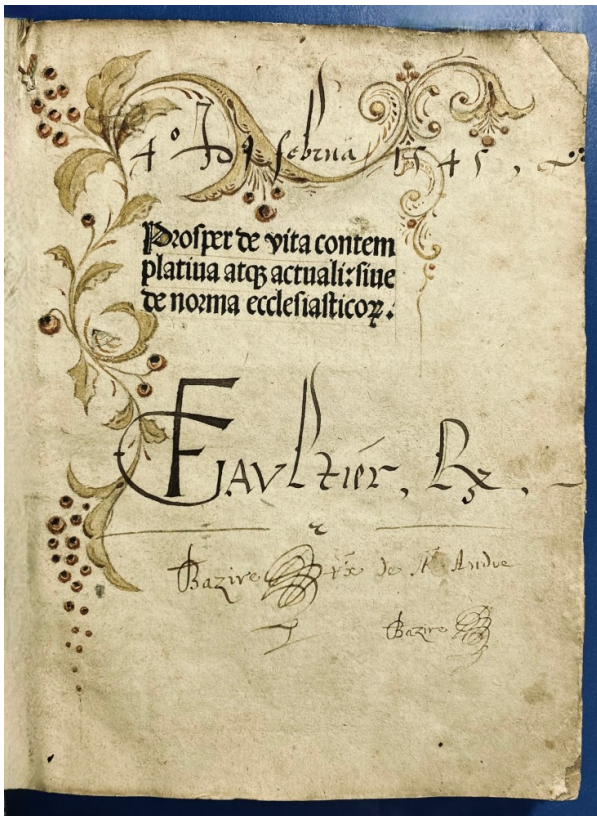 4º Februa 1545,
Prosper de vita contem
platiua atqꝫ actuali: siue
de norma ecclesiasticoꝝ.
Gaultier,
Bazire de St Andre
Bazire